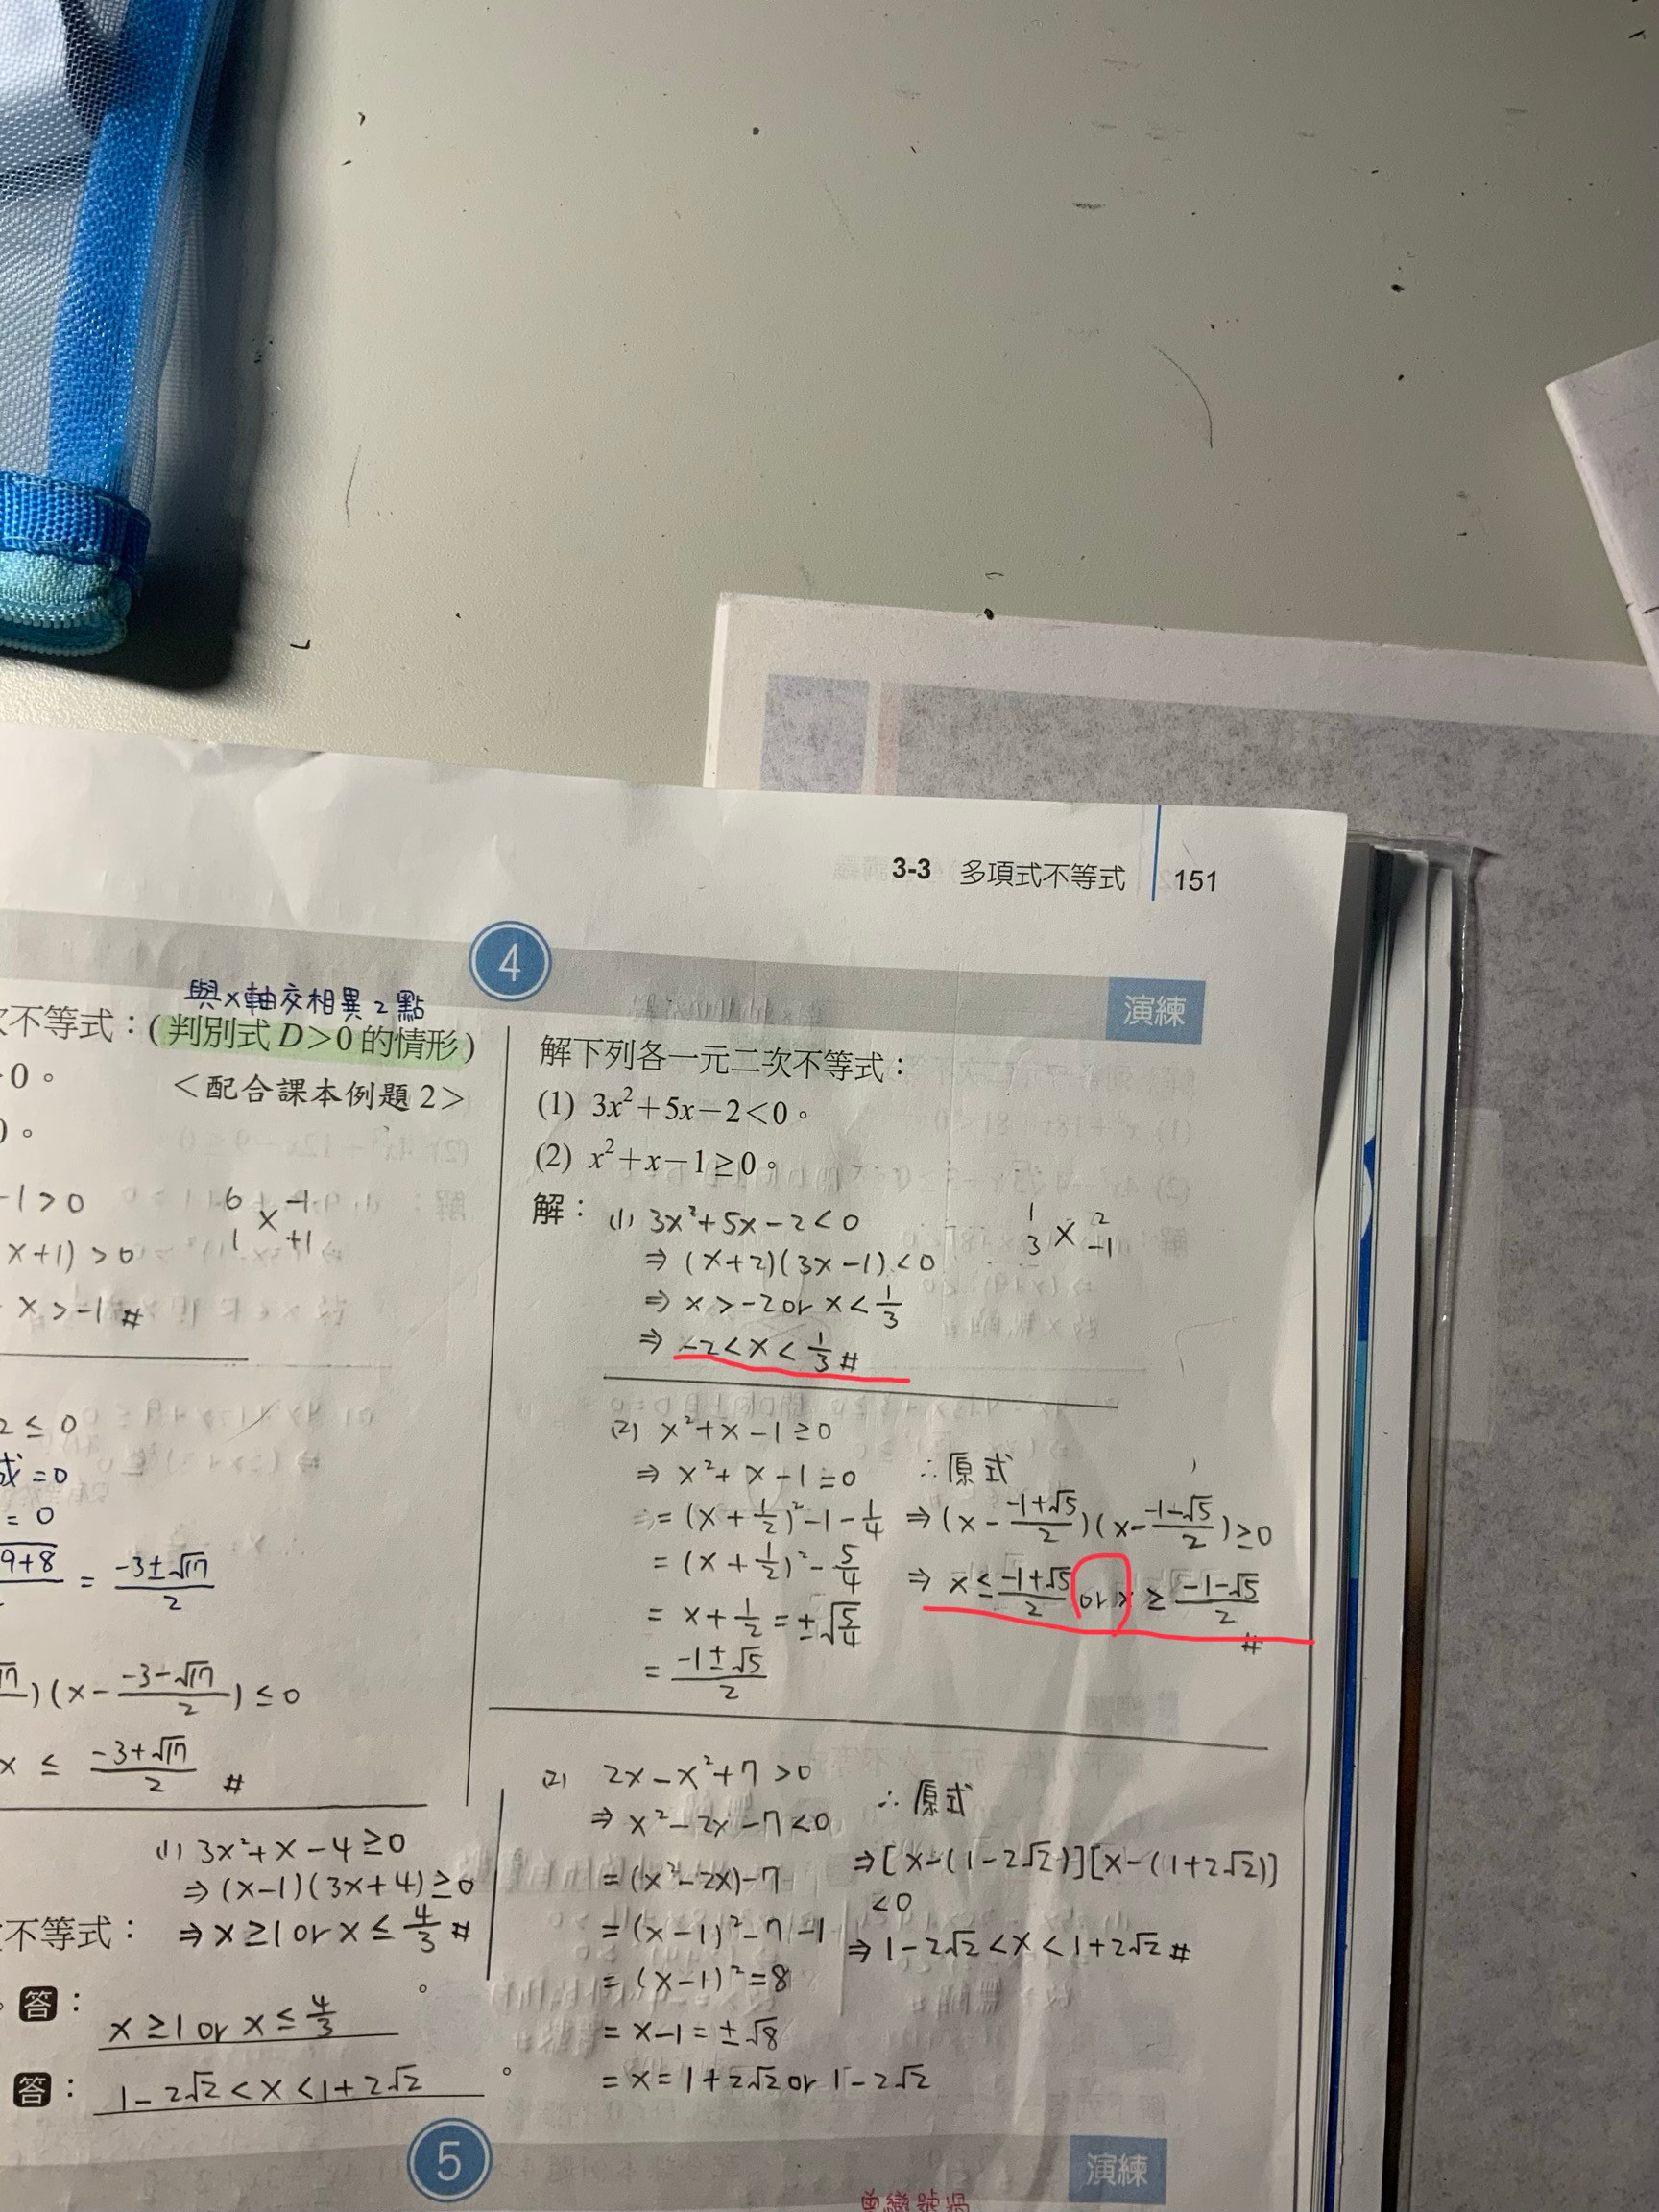 3-3 多項式不等式 151
4
演練
與x軸交相異2點
次不等式：(判別式D>0的情形)
>0。
<配合課本例題2>
0。
-1>0
6 -1
x
1 +1
x+1)>0
x>-1 #
2≤0
=0
=0
9+8 = -3±√17/2
)(x- -3-√17/2)≤0
x ≤ -3+√17/2 #
(1) 3x²+x-4≥0
⇒(x-1)(3x+4)≥0
⇒x≥1 or x≤4/3 #
不等式：
。答：x≥1 or x≤4/3。
答：1-2√2<x<1+2√2。
解下列各一元二次不等式：
(1) 3x²+5x-2<0。
(2) x²+x-1≥0。
解：(1) 3x²+5x-2<0
1 2
x
3 -1
⇒(x+2)(3x-1)<0
⇒x>-2 or x<1/3
⇒-2<x<1/3 #
(2) x²+x-1≥0
⇒x²+x-1=0
=(x+1/2)²-1-1/4
=(x+1/2)²-5/4
=x+1/2=±√5/4
=-1±√5/2
∴原式
⇒(x- -1+√5/2)(x- -1-√5/2)≥0
⇒x≤ -1+√5/2 or x≥ -1-√5/2
#
(2) 2x-x²+7>0
⇒x²-2x-7<0
=(x²-2x)-7
=(x-1)²-7-1
=(x-1)²=8
=x-1=±√8
=x=1+2√2 or 1-2√2
∴原式
⇒[x-(1-2√2)][x-(1+2√2)]
<0
⇒1-2√2<x<1+2√2 #
5
演練